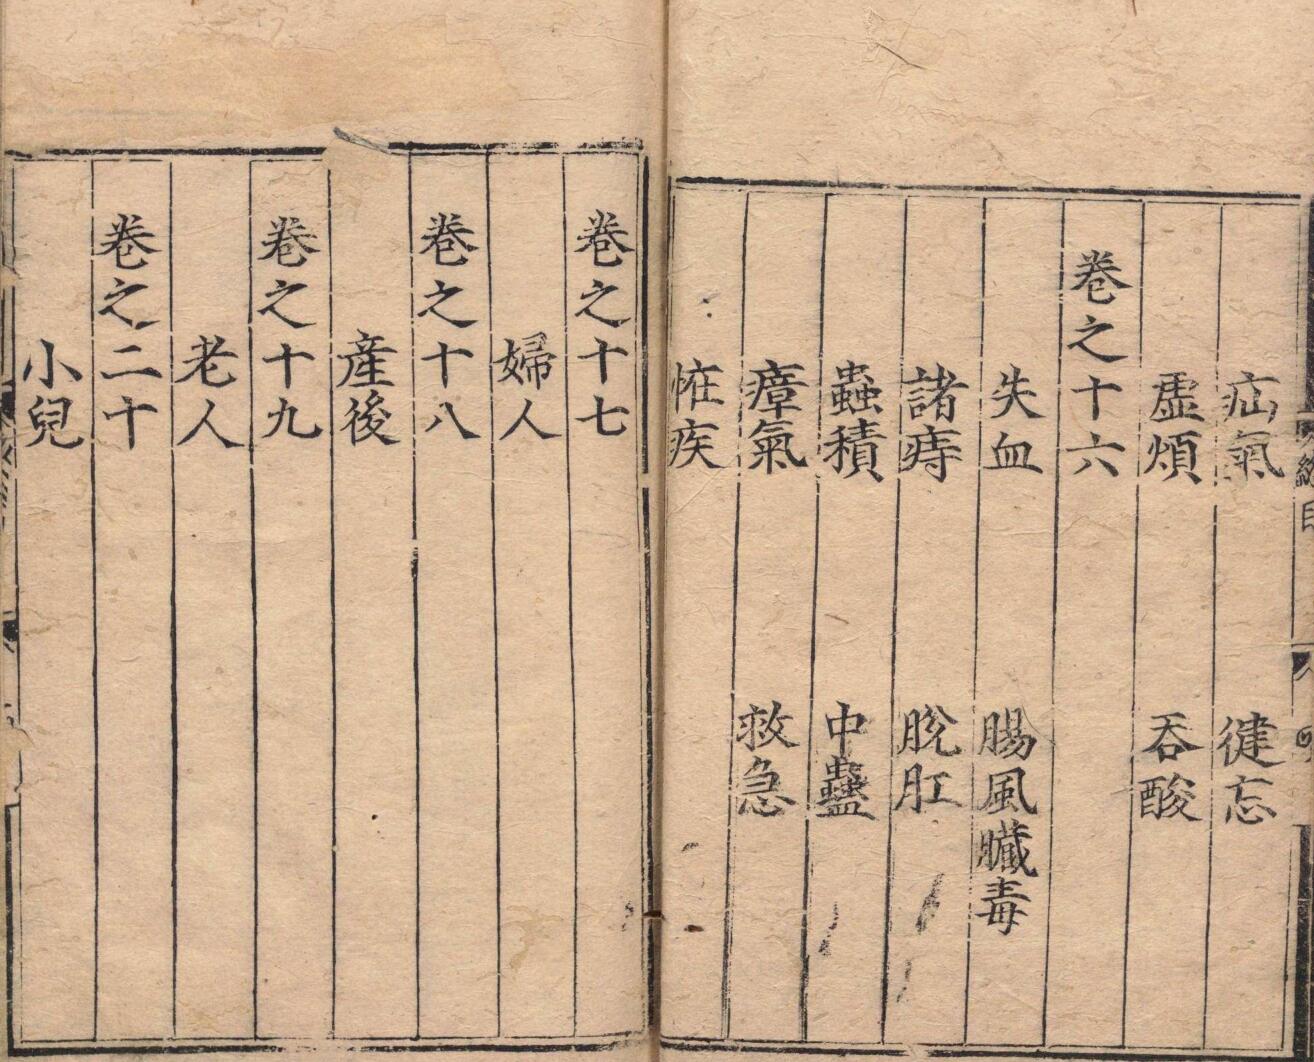 疝氣　健忘
虛煩　吞酸
卷之十六
失血　腸風臟毒
諸痔　脫肛
蟲積　中蠱
瘴氣　救急
恠疾
卷之十七
婦人
卷之十八
產後
卷之十九
老人
卷之二十
小兒